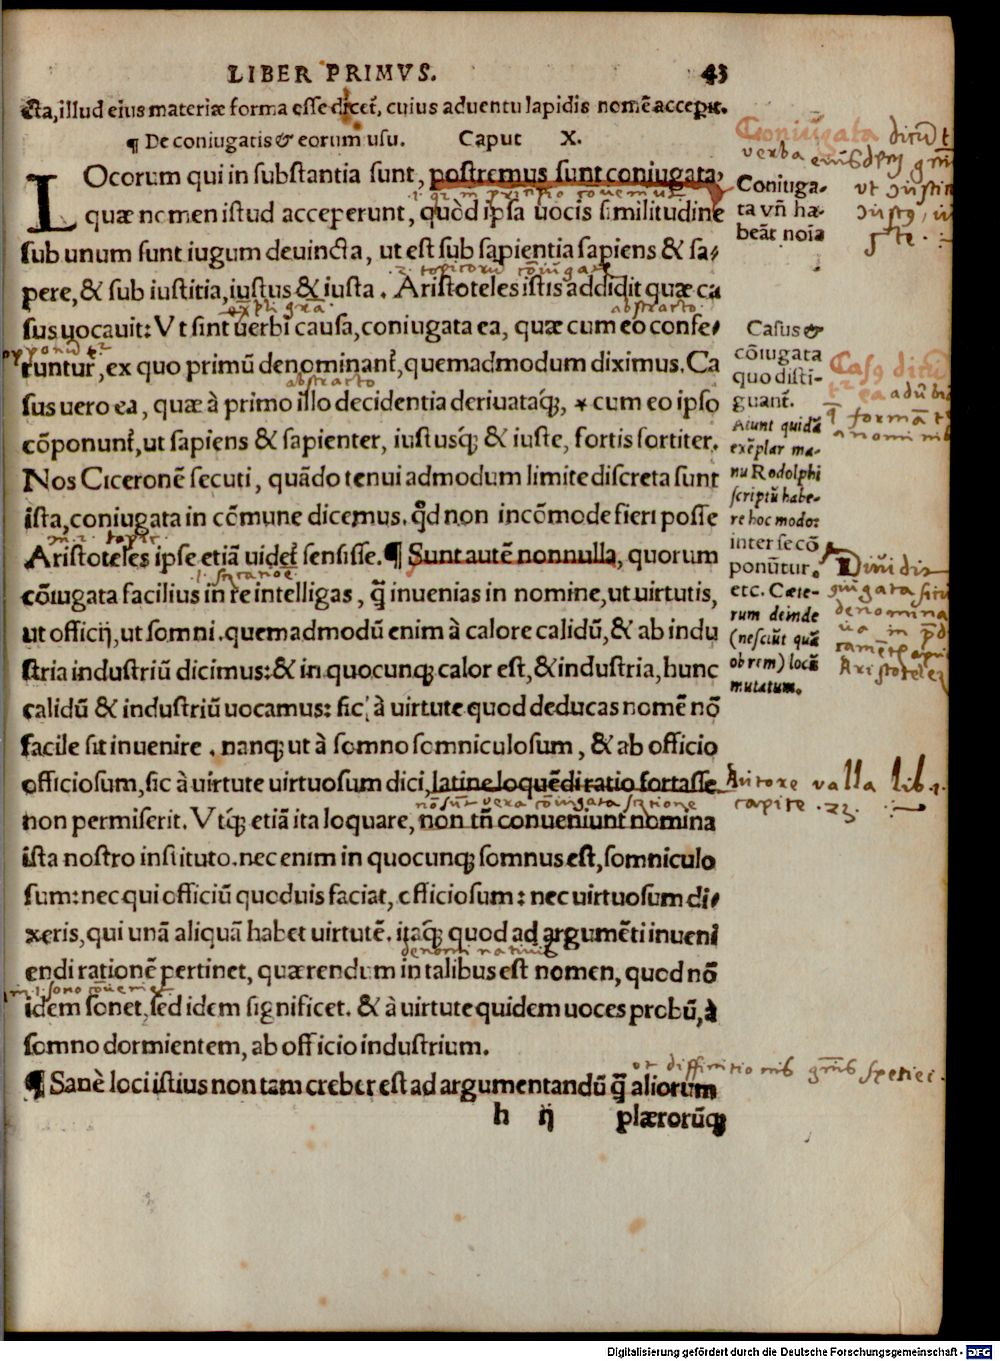 LIBER PRIMVS. 43
cta, illud eius materiæ forma esse dicet̃, cuius aduentu lapidis nomẽ accepit.
¶ De coniugatis & eorum usu. Caput X.
LOcorum qui in substantia sunt, postremus sunt coniugata,
quæ nomen istud acceperunt, quòd ipsa uocis similitudine
sub unum sunt iugum deuincta, ut est sub sapientia sapiens & sa-
pere, & sub iustitia, iustus & iusta. Aristoteles istis addidit quæ ca
sus uocauit: Vt sint uerbi causa, coniugata ea, quæ cum eo confe-
runtur, ex quo primũ denominant̃, quemadmodum diximus. Ca
sus uero ea, quæ à primo illo decidentia deriuataq́;, * cum eo ipso
cõponunt̃, ut sapiens & sapienter, iustusq́; & iuste, fortis fortiter.
Nos Ciceronẽ secuti, quãdo tenui admodum limite discreta sunt
ista, coniugata in cõmune dicemus. qđ non incõmode fieri posse
Aristoteles ipse etiã uidet̃ sensisse. ¶ Sunt autẽ nonnulla, quorum
cõiugata facilius in re intelligas, q̃ inuenias in nomine, ut uirtutis,
ut officij, ut somni. quemadmodũ enim à calore calidũ, & ab indu
stria industriũ dicimus: & in quocunq; calor est, & industria, hunc
calidũ & industriũ uocamus: sic à uirtute quod deducas nomẽ nõ
facile sit inuenire. nanq; ut à somno somniculosum, & ab officio
officiosum, sic à uirtute uirtuosum dici, latine loquẽdi ratio fortasse
non permiserit. Vtq́; etiã ita loquare, non tñ conueniunt nomina
ista nostro instituto. nec enim in quocunq; somnus est, somniculo
sum: nec qui officiũ quoduis faciat, officiosum: nec uirtuosum di-
xeris, qui unã aliquã habet uirtutẽ. itaq; quod ad argumẽti inueni
endi rationẽ pertinet, quærendum in talibus est nomen, quod nõ
idem sonet, sed idem significet. & à uirtute quidem uoces probũ, à
somno dormientem, ab officio industrium.
¶ Sanè loci istius non tam creber est ad argumentandũ q̃ aliorum
h ij plærorũq;
Coniuga-
ta vñ ha-
beãt noĩa
Casus &
cõiugata
quo disti-
guant̃.
Aiunt quidã
exẽplar ma-
nu Rodolphi
scriptũ habe-
re hoc modo:
inter se cõ
ponũtur.
etc. Cæte-
rum deinde
(nesciũt quã
ob rem) locũ
mutatum.
Autore valla lib. 1.
capite .23.
Digitalisierung gefördert durch die Deutsche Forschungsgemeinschaft - DFG